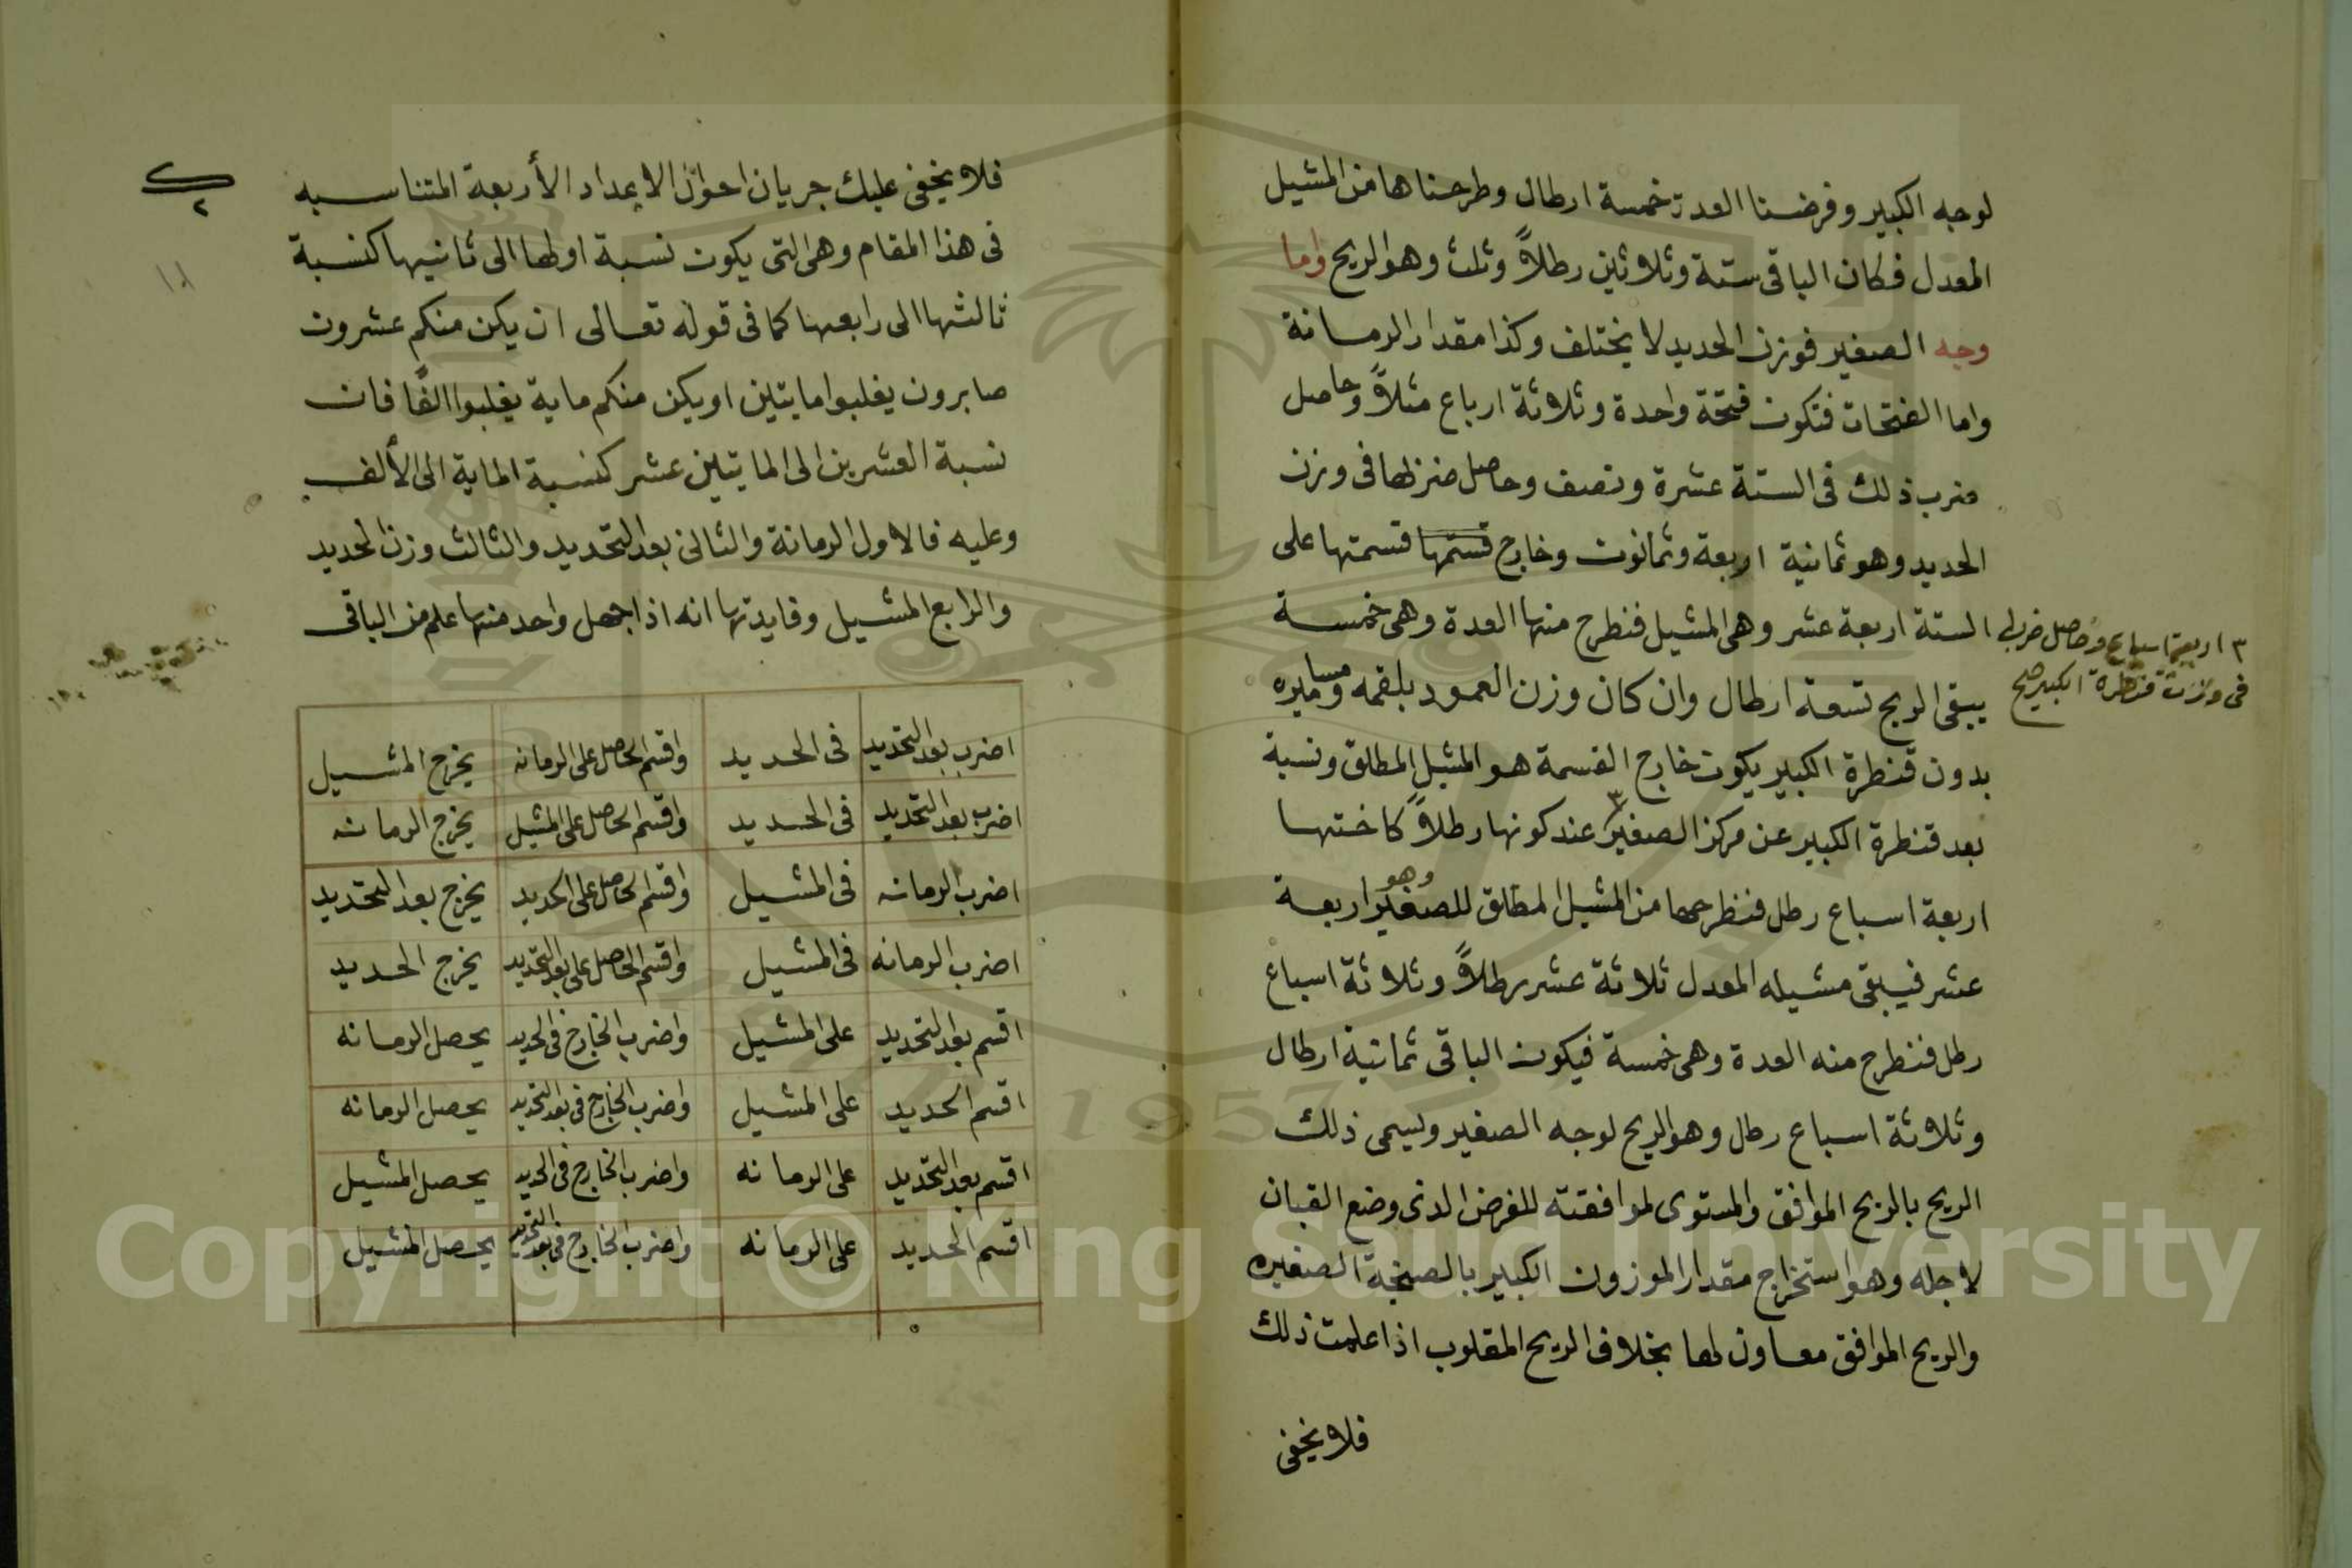 لوجه الكبير وفرضنا العدة خمسة ارطال وطرحناها من المشيل
المعدل فكان الباقى ستة وثلاثين رطلاً وثلث وهو الريح واما
وجه الصغير فوزن الحديد لا يختلف وكذا مقدار الرمانة
واما الفتحات فتكون فتحة واحدة وثلاثة ارباع مثلاً وحاصل
ضرب ذلك فى الستة عشرة ونصف وحاصل ضربها فى وزن
الحديد وهو ثمانية اربعة وثمانون وخارج قستمها قسمتها على
الستة اربعة عشر وهى المشيل فنطرح منها العدة وهى خمسة
يبقى الريح تسعة ارطال وان كان وزن العمود بلقمه ومساميره
بدون قنطرة الكبير يكون خارج القسمة هو المشيل المطلق ونسبة
بعد قنطرة الكبير عن مركز الصغير ٣ عند كونها رطلاً كاختها
اربعة اسباع رطل فنطرحها من المشيل المطلق للصغير وهو اربعة
عشر فيبقى مشيله المعدل ثلاثة عشر رطلاً وثلاثة اسباع
رطل فنطرح منه العدة وهى خمسة فيكون الباقى ثمانية ارطال
وثلاثة اسباع رطل وهو الريح لوجه الصغير ويسمى ذلك
الريح بالريح الموافق والمستوى لموافقته للغرض الذى وضع القبان
لاجله وهو استخراج مقدار الموزون الكبير بالصنجة الصغيره
والريح الموافق معاون لها بخلاف الريح المقلوب اذا علمت ذلك
فلا يخفى
٣ اربعة اسباع وحاصل ضربه
فى وزن قنطرة الكبير صح
فلا يخفى عليك جريان احوال الاعداد الأربعة المتناسبه
فى هذا المقام وهى التى يكون نسبة اولها الى ثانيها كنسبة
ثالثها الى رابعها كما فى قوله تعالى ان يكن منكم عشرون
صابرون يغلبوا مايتين او يكن منكم ماية يغلبوا الفًا فان
نسبة العشرين الى المايتين عشر كنسبة الماية الى الألف
وعليه فالاول الرمانة والثانى بعد التحديد والثالث وزن الحديد
والرابع المشيل وفايدتها انه اذا جهل واحد منها علم من الباقى
اضرب بعد التحديد فى الحديد واقسم الحاصل على الرمانه يخرج المشيل
اضرب بعد التحديد فى الحديد واقسم الحاصل على المشيل يخرج الرمانه
اضرب الرمانه فى المشيل واقسم الحاصل على الحديد يخرج بعد التحديد
اضرب الرمانه فى المشيل واقسم الحاصل على بعد التحديد يخرج الحديد
اقسم بعد التحديد على المشيل واضرب الخارج فى الحديد يحصل الرمانه
اقسم الحديد على المشيل واضرب الخارج فى بعد التحديد يحصل الرمانه
اقسم بعد التحديد على الرمانه واضرب الخارج فى الحديد يحصل المشيل
اقسم الحديد على الرمانه واضرب الخارج فى بعد التحديد يحصل المشيل
1957
Copyright © King Saud University